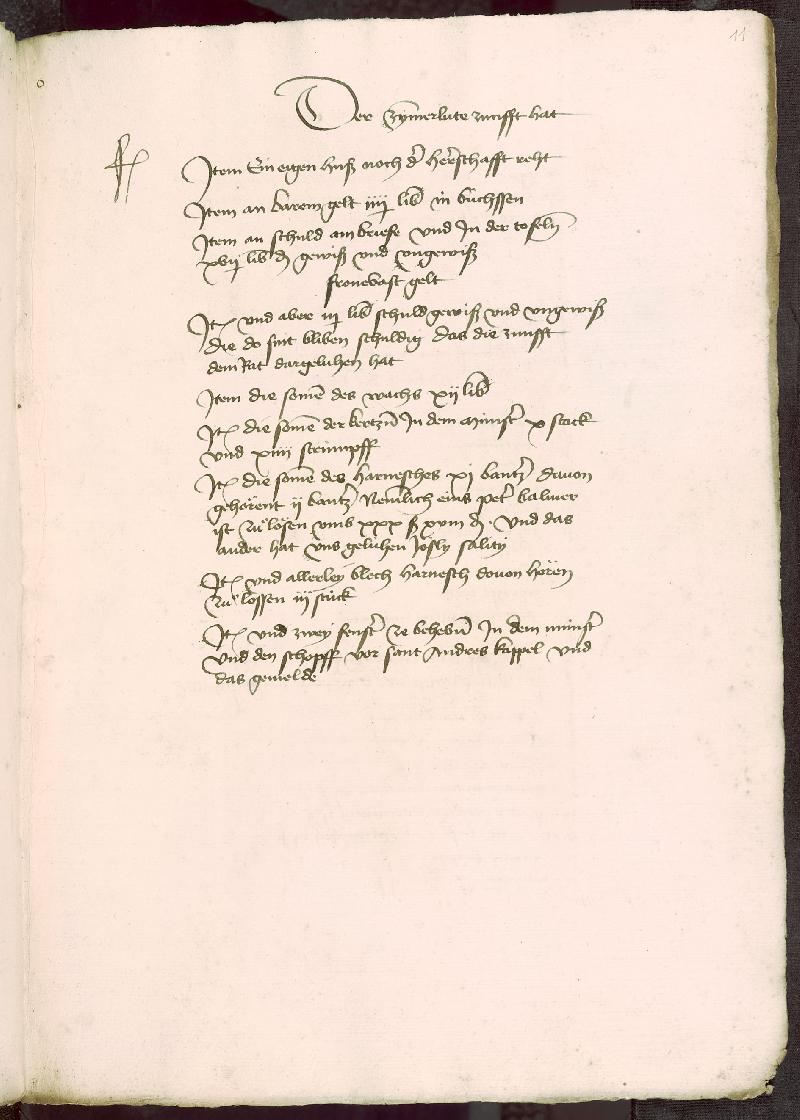 11
Der zym̄erlute zunfft hat
Item Ein eigen huß noch d' herschafft reht
Item an barem gelt iiij lib in buchssen
Item an schuld am briefe und In der tofeln
xvij lib d gewiß und ungewiß
fronevast gelt
It und aber iij lib schuld gewiß und ungewiß
die do sint bliben schuldig das die zunfft
dem Rat dargeluhen hat
Item die som̄e des wachs xij lib
It die som̄e der kertzn̄ In dem munst' x stuck
und xiiij stumpff
It die som̄e des harnesches xj bantz' davon
gehörent ij bantz' Nemlich eins pet' balmer
ist zu lösen umb xxx ß xviij d. und das
ander hat uns geluhen Josly
It und allerley blech harnesch dovon hören
zu lossen iij stuck
It und zwey fenst' ze behebn̄ In dem munst'
und den schopff vor sant Andres kappel und
das gemelde